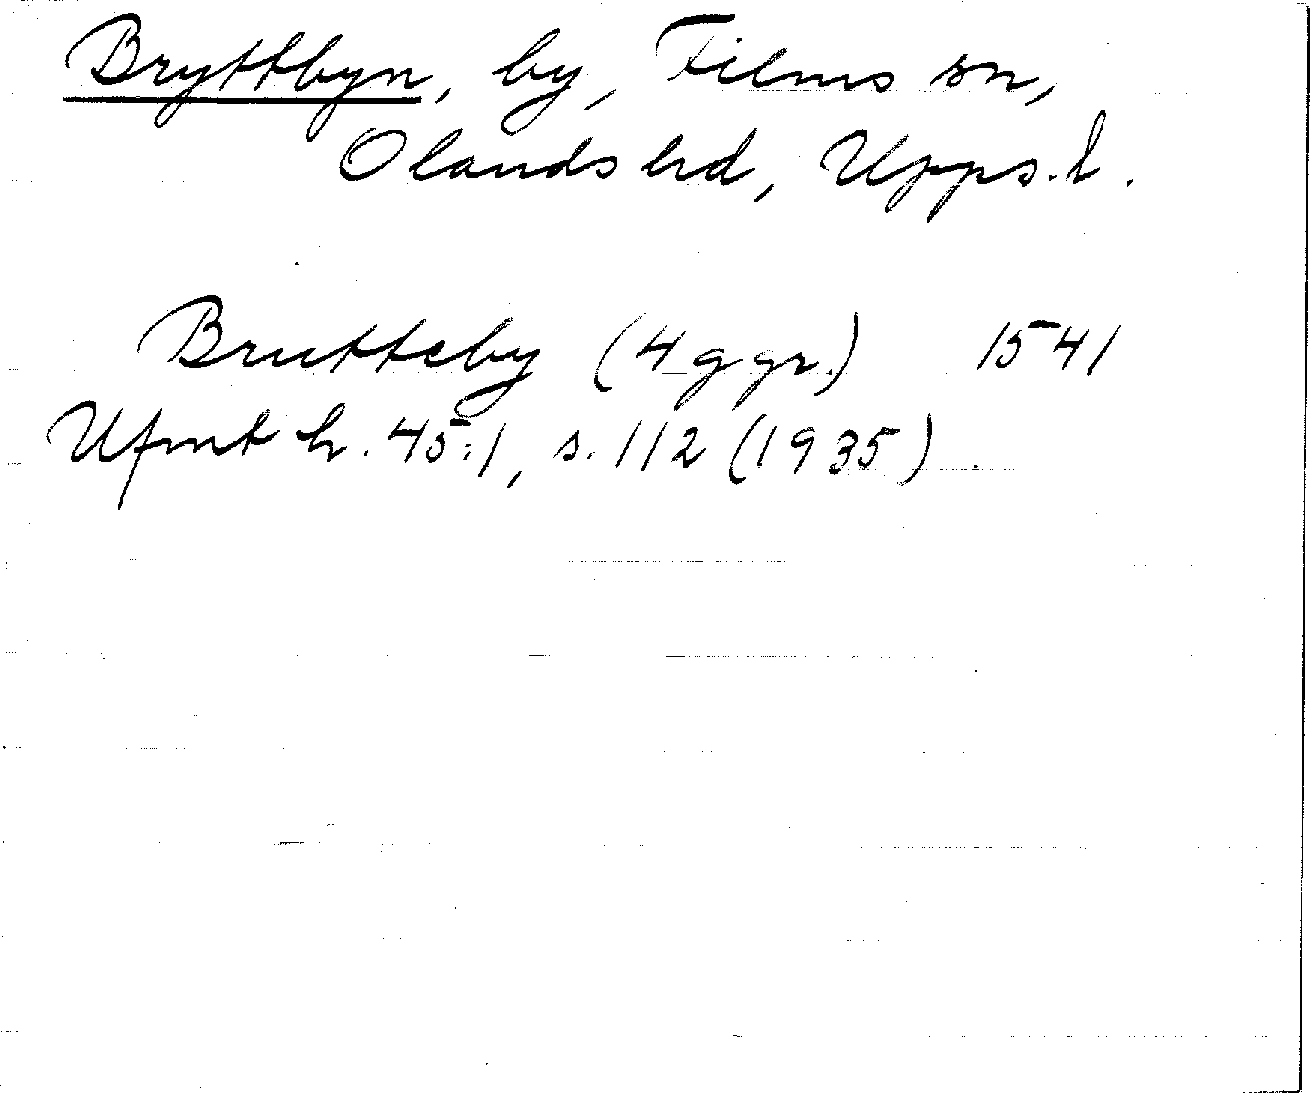 Bryttbyn, by, Films sn,
Olands hd, Upps. l.
Brutteby (4 ggr.) 1541
Ufmt h. 45:1, s. 112 (1935)